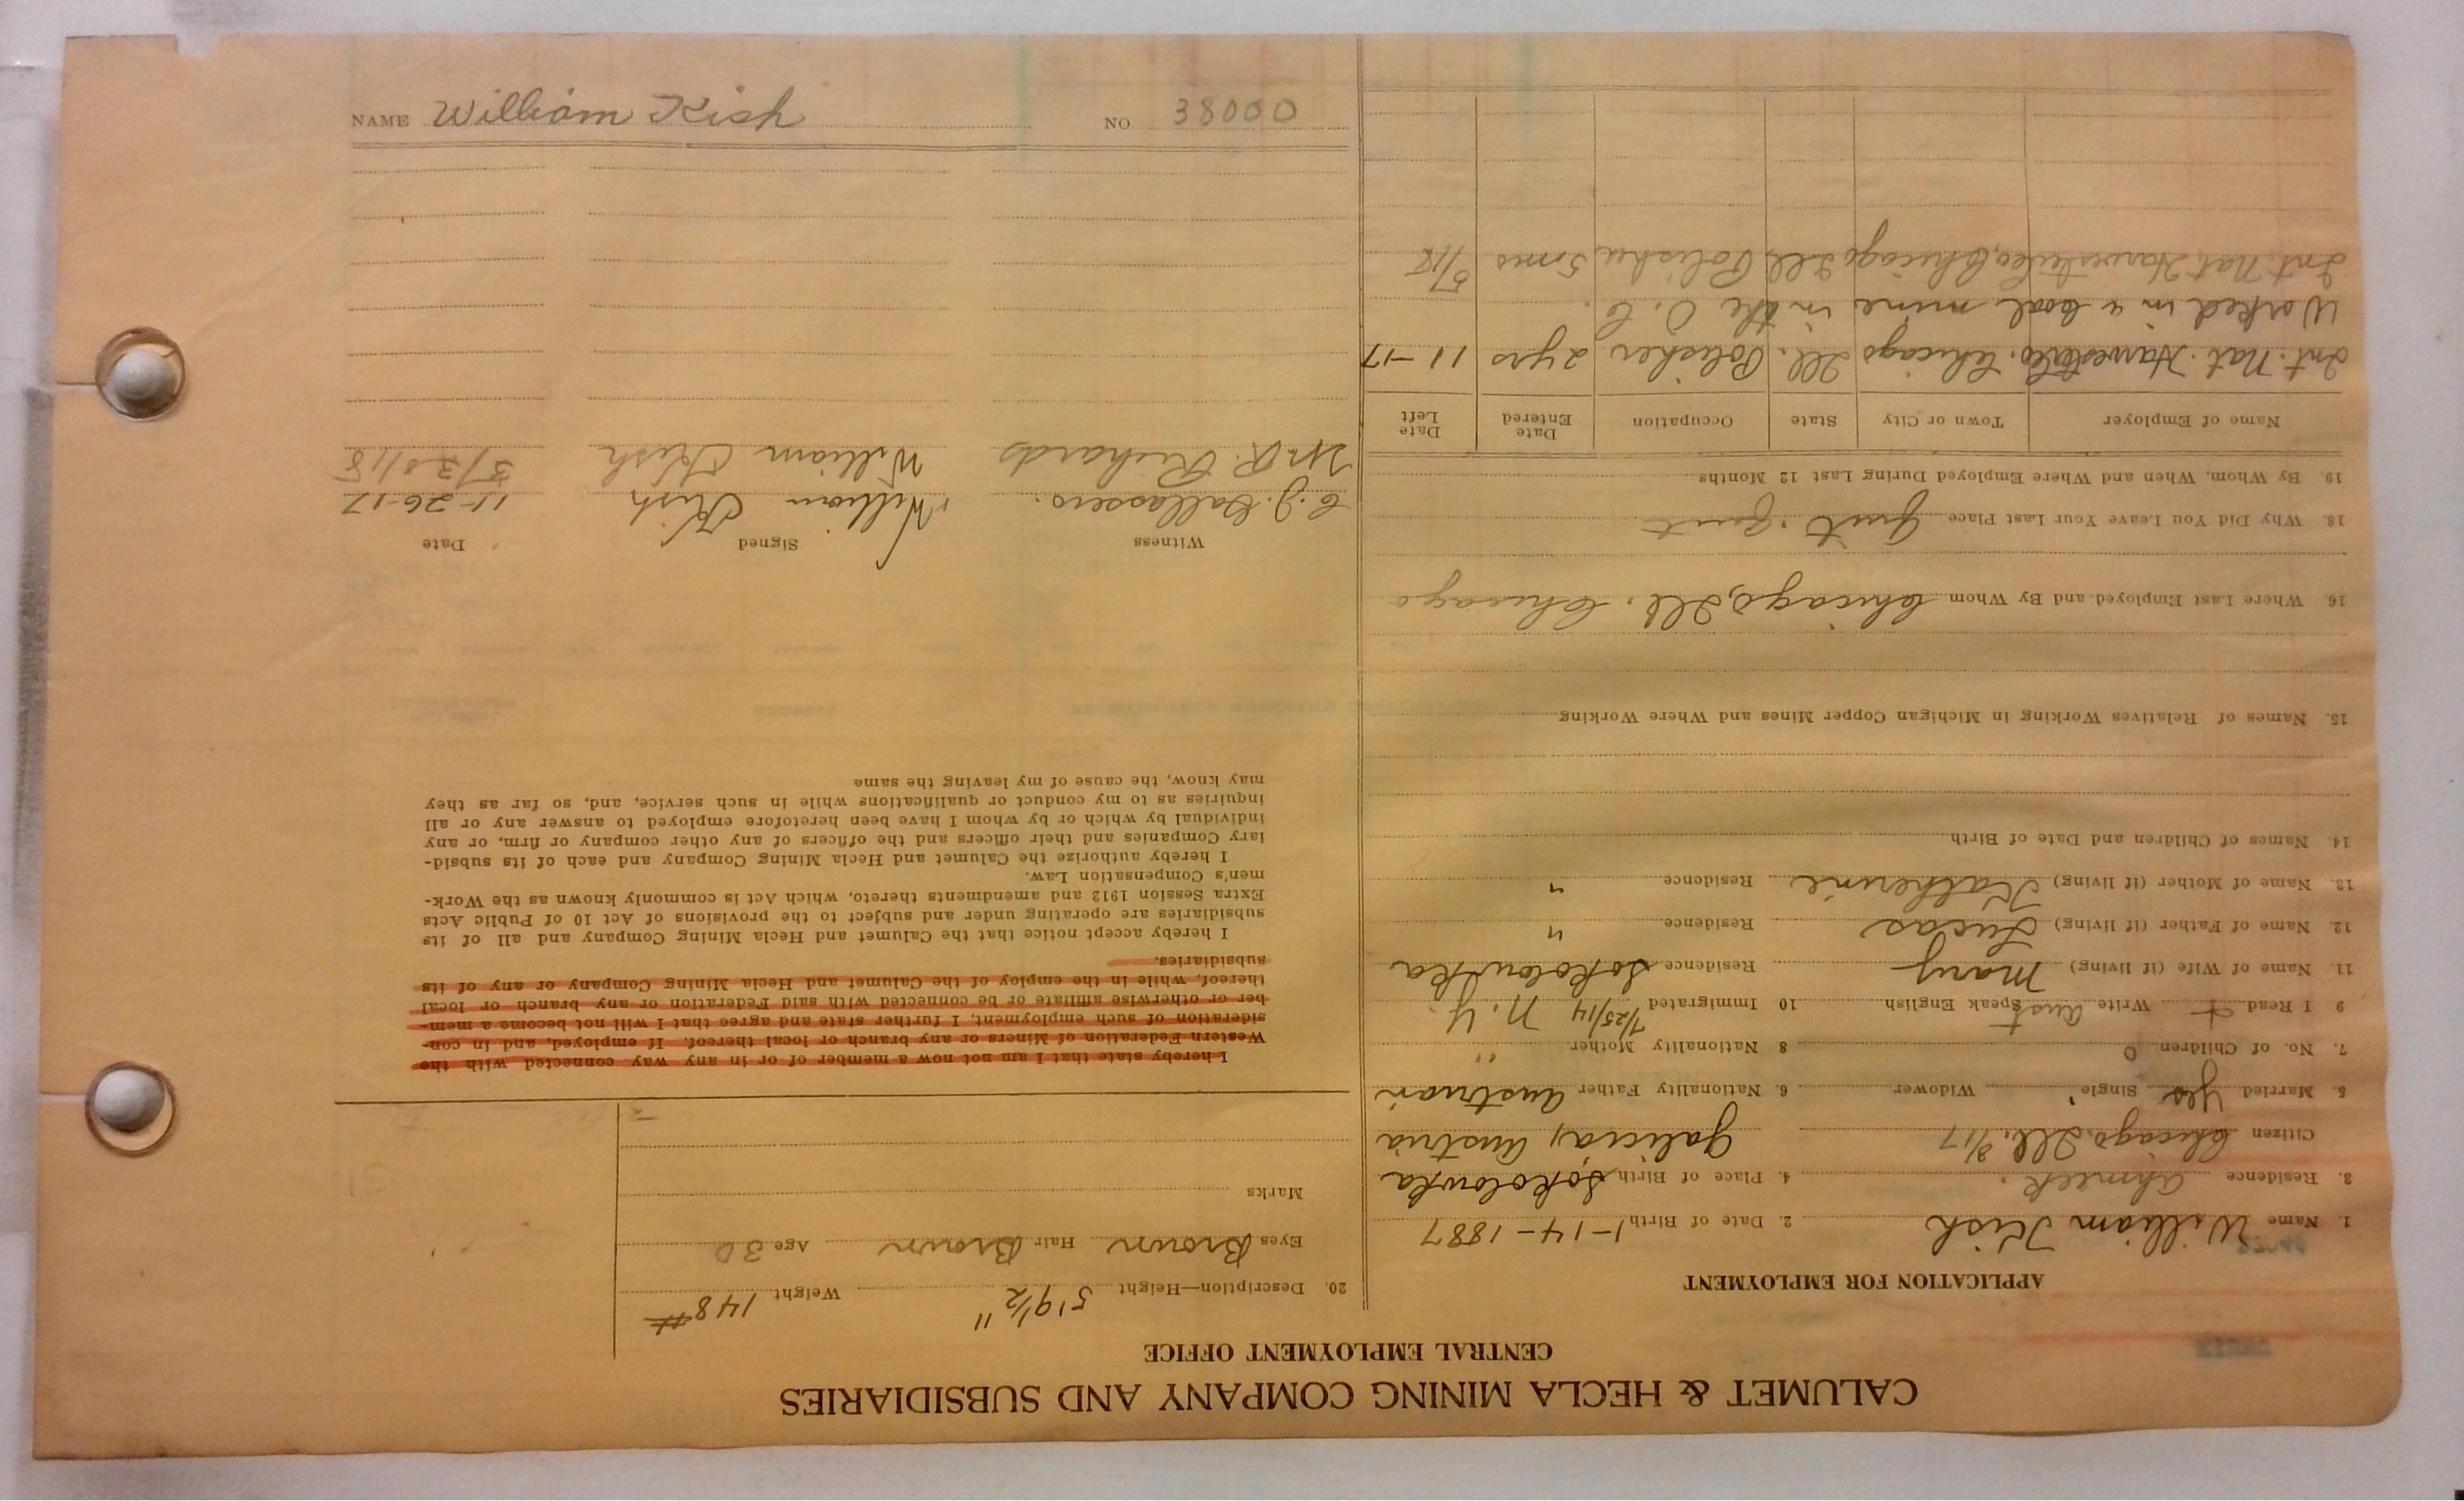 CALUMET & HECLA MINING COMPANY AND SUBSIDIARIES
CENTRAL EMPLOYMENT OFFICE
APPLICATION FOR EMPLOYMENT
1. Name William Kish 2. Date of Birth 1-14-1887
3. Residence Ahmeek. 4. Place of Birth Sokolowka
Citizen Chicago, Ill. 8/17 Galicia, Austria
5. Married Yes Single Widower 6. Nationality Father Austrian
7. No. of Children 0 8 Nationality Mother "
9 I Read Write Speak English 10 Immigrated 7/25/14 N.Y.
Aust
11. Name of Wife (if living) Mary Residence Sokolowka
12. Name of Father (if living) Lucas Residence "
13. Name of Mother (if living) Katherine Residence "
14. Names of Children and Date of Birth
15. Names of Relatives Working in Michigan Copper Mines and Where Working
16. Where Last Employed and By Whom Chicago, Ill. Chicago
18. Why Did You Leave Your Last Place Quit. Quit
19. By Whom, When and Where Employed During Last 12 Months
Name of Employer Town or City State Occupation Date Entered Date Left
Int. Nat. Harvester Co. Chicago Ill. Polisher 2 yrs 11-17
Worked in a coal mine in the O.C.
Int. Nat Harvester Co, Chicago Ill Polisher 5 mos 5/18
20. Description—Height 5' 9 1/2" Weight 148#
Eyes Brown Hair Brown Age 30
Marks
I hereby state that I am not now a member of or in any way connected with the
Western Federation of Miners or any branch or local thereof. If employed, and in con-
sideration of such employment, I further state and agree that I will not become a mem-
ber or otherwise affiliate or be connected with said Federation or any branch or local
thereof, while in the employ of the Calumet and Hecla Mining Company or any of its
subsidiaries.
I hereby accept notice that the Calumet and Hecla Mining Company and all of its
subsidiaries are operating under and subject to the provisions of Act 10 of Public Acts
Extra Session 1912 and amendments thereto, which Act is commonly known as the Work-
men's Compensation Law.
I hereby authorize the Calumet and Hecla Mining Company and each of its subsid-
iary Companies and their officers and the officers of any other company or firm, or any
individual by which or by whom I have been heretofore employed to answer any or all
inquiries as to my conduct or qualifications while in such service, and, so far as they
may know, the cause of my leaving the same
Witness Signed Date
C. J. William Kish 11-26-17
Richards William Kish 5/30/18
NAME William Kish NO 38000